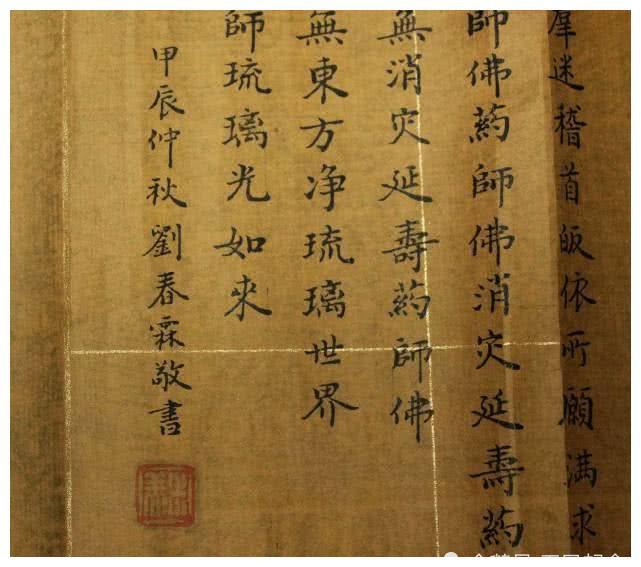 羣迷稽首皈依所願滿求
師佛葯師佛消灾延壽葯
無消灾延壽葯師佛
無東方净琉璃世界
師琉璃光如來
甲辰仲秋劉春霖敬書